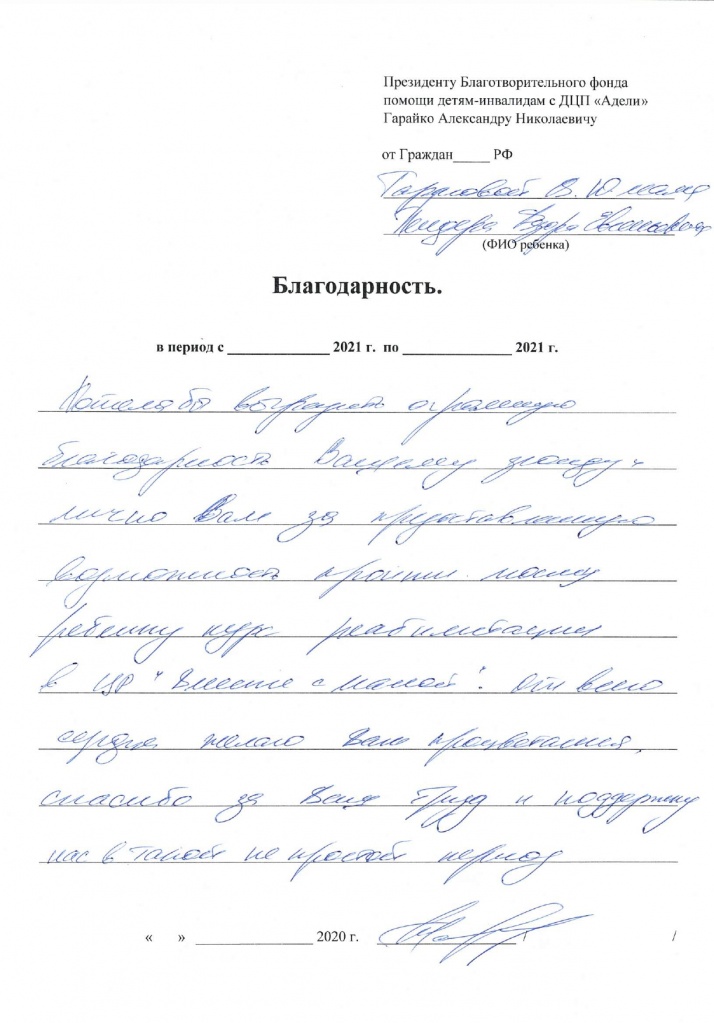 Президенту Благотворительного фонда
помощи детям-инвалидам с ДЦП «Адели»
Гарайко Александру Николаевичу
от Граждан_____ РФ
(ФИО ребенка)
Благодарность.
в период с ______________ 2021 г. по _______________ 2021 г.
Хотела бы выразить огромную
благодарность Вашему фонду и
лично Вам за предоставленную
возможность пройти моему
ребенку курс реабилитации
в ЦР "Вместе с мамой". От всего
сердца желаю Вам процветания,
спасибо за Ваш труд и поддержку
нас в такой не простой период
« » ________________ 2020 г. ___________________ / /